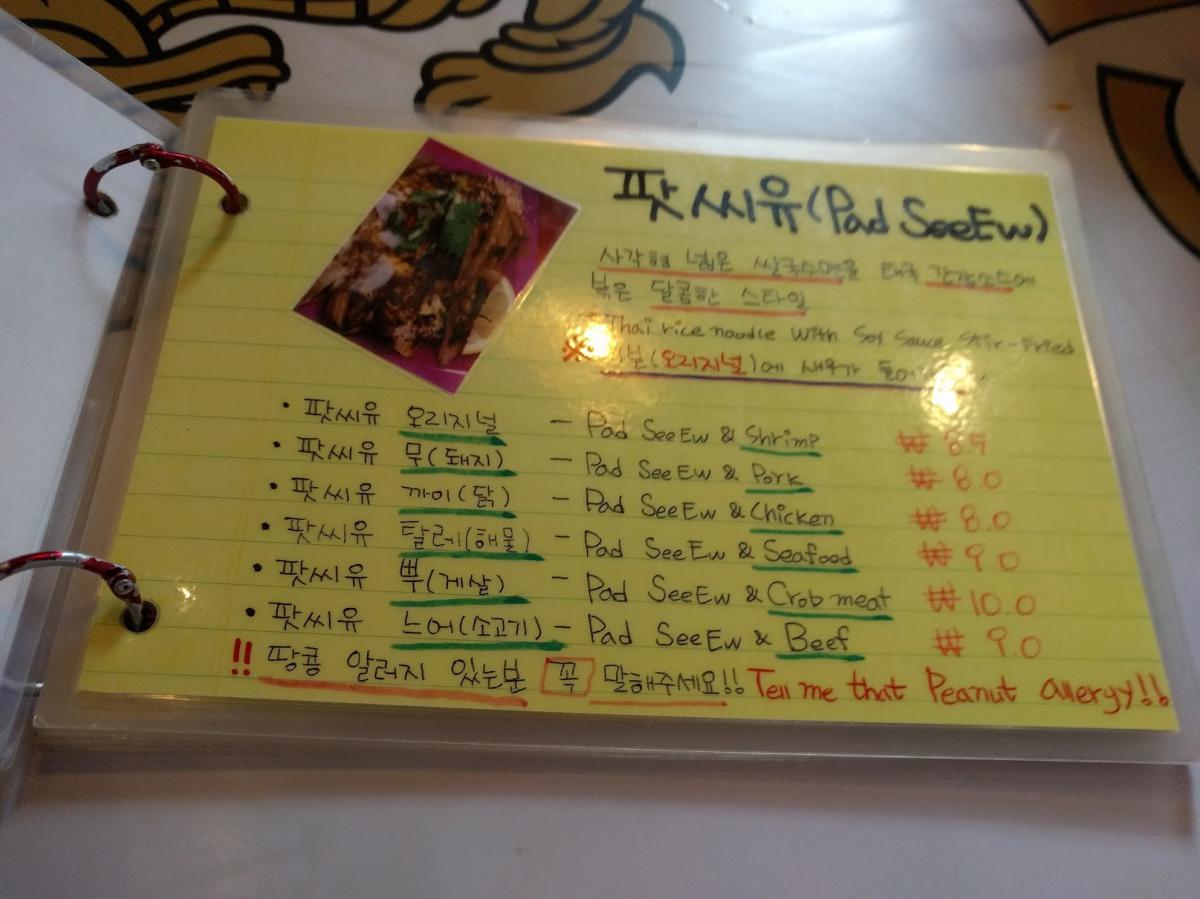 팟씨유(Pad SeeEw)
사각형 넓은 쌀국수면을 태국 간장소스에
볶은 달콤한 스타일
Thai rice noodle with Soy Sauce Stir-Fried
※ (오리지널)에 새우가
• 팟씨유 오리지널 – Pad SeeEw & Shrimp ₩ 8.5
• 팟씨유 무(돼지) – Pad SeeEw & Pork ₩ 8.0
• 팟씨유 까이(닭) – Pad SeeEw & Chicken ₩ 8.0
• 팟씨유 탈레(해물) – Pad SeeEw & Seafood ₩ 9.0
• 팟씨유 뿌(게살) – Pad SeeEw & Crob meat ₩ 10.0
• 팟씨유 느어(소고기) – Pad SeeEw & Beef ₩ 9.0
!! 땅콩 알러지 있는분 꼭 말해주세요!! Tell me that Peanut allergy!!